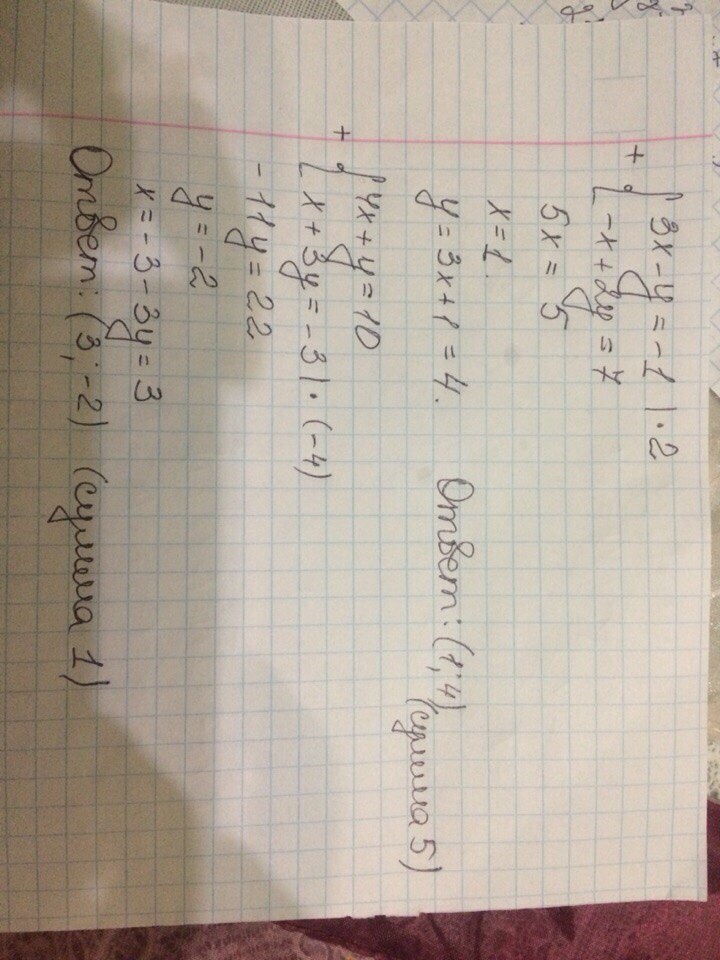 + { 3x - y = -1 | · 2
-x + 2y = 7
5x = 5
x = 1.
y = 3x + 1 = 4.
Ответ: (1; 4)
(сумма 5)
+ { 4x + y = 10
x + 3y = -3 | · (-4)
-11y = 22
y = -2
x = -3 - 3y = 3
Ответ: (3; -2) (сумма 1)